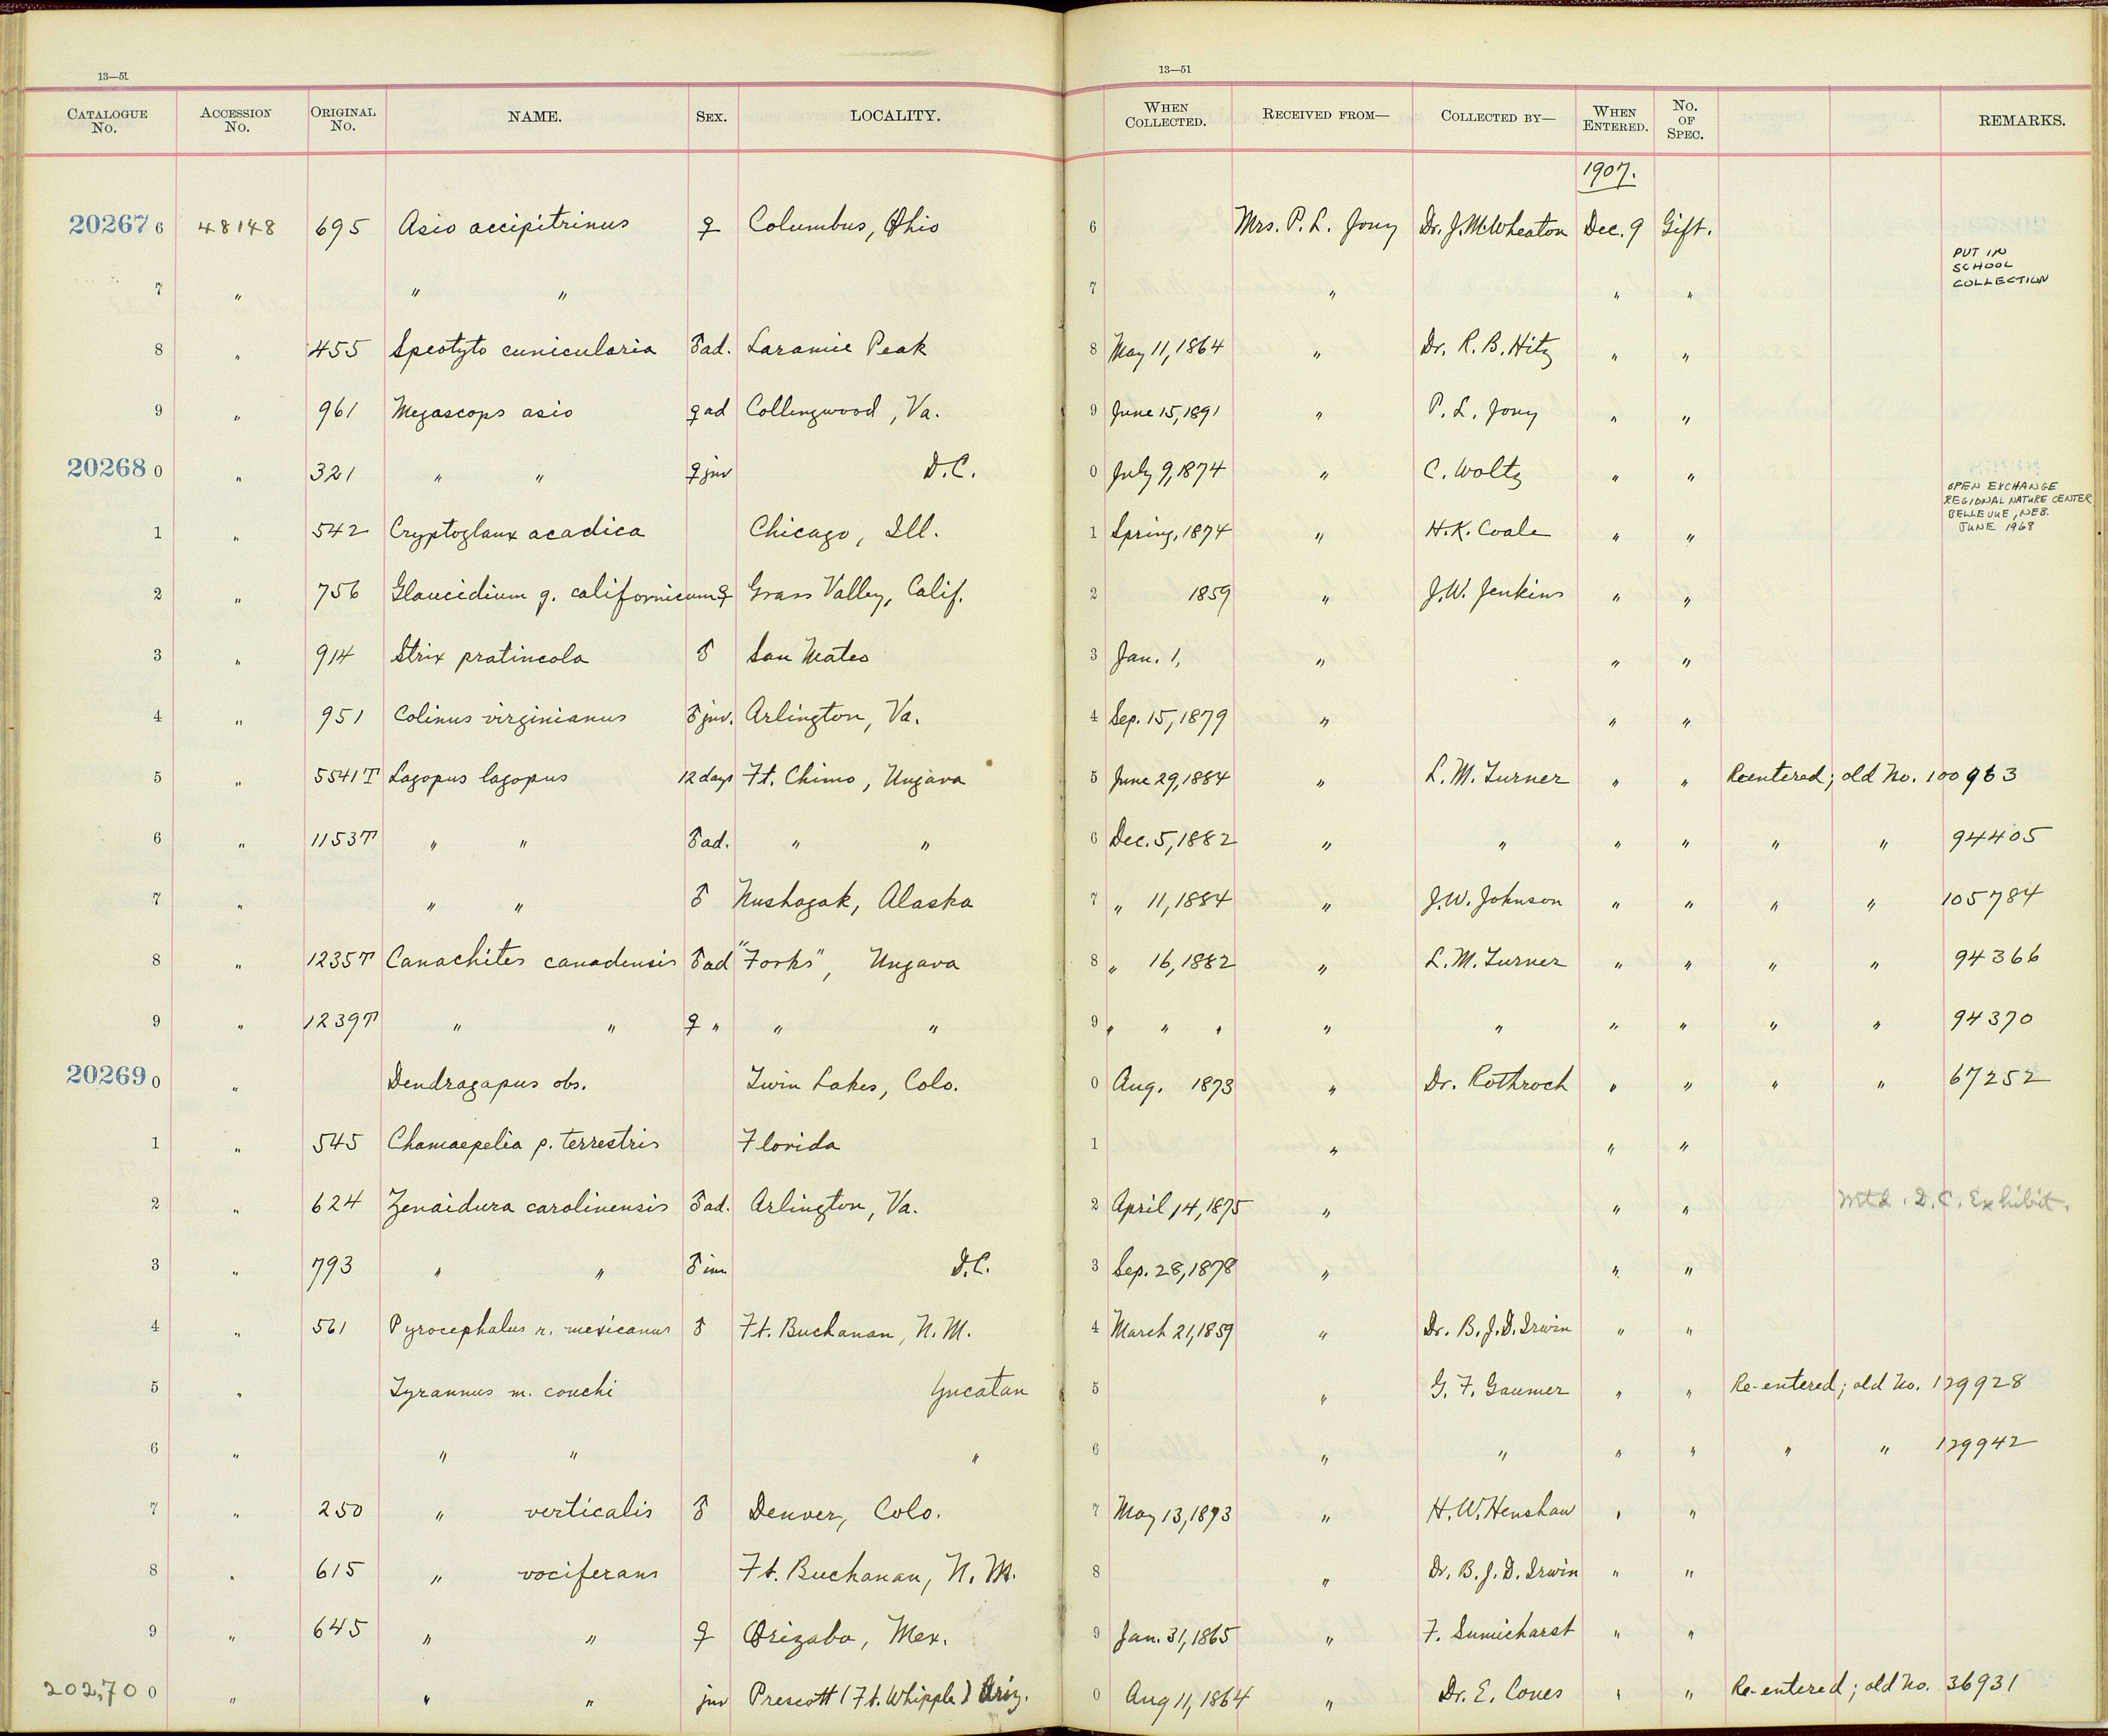 13—51
13—51
CATALOGUE No. ACCESSION No. ORIGINAL No. NAME. SEX. LOCALITY. WHEN COLLECTED. RECEIVED FROM— COLLECTED BY— WHEN ENTERED. No. OF SPEC. REMARKS.
1907.
20267 6 48148 695 Asio accipitrinus ♀ Columbus, Ohio 6 Mrs. P. L. Jouy Dr. J. M. Wheaton Dec. 9 Gift.
7 " " " 7 " " " PUT IN SCHOOL COLLECTION
8 " 455 Speotyto cunicularia ♂ ad. Laramie Peak 8 May 11, 1864 " Dr. R. B. Hitz " "
9 " 961 Megascops asio ♀ ad Collingwood, Va. 9 June 15, 1891 " P. L. Jouy " "
20268 0 " 321 " " ♀ juv D.C. 0 July 9, 1874 " C. Woltz " "
1 " 542 Cryptoglaux acadica Chicago, Ill. 1 Spring, 1874 " H. K. Coale " " OPEN EXCHANGE REGIONAL NATURE CENTER BELLEVUE, NEB. JUNE 1968
2 " 756 Glaucidium g. californicum ♀ Grass Valley, Calif. 2 1859 " J. W. Jenkins " "
3 " 914 Strix pratincola ♂ San Mateo 3 Jan. 1, " " "
4 " 951 Colinus virginianus ♂ juv. Arlington, Va. 4 Sep. 15, 1879 " " "
5 " 5541T Lagopus lagopus 12 days Ft. Chimo, Ungava 5 June 29, 1884 " L. M. Turner " " Reentered; old No. 100963
6 " 1153T " " ♂ ad. " " 6 Dec. 5, 1882 " " " " " " 94405
7 " " " ♂ Nushagak, Alaska 7 " 11, 1884 " J. W. Johnson " " " " 105784
8 " 1235T Canachites canadensis ♂ ad "Forks", Ungava 8 " 16, 1882 " L. M. Turner " " " " 94366
9 " 1239T " " ♀ " " " 9 " " " " " " " " " 94370
20269 0 " Dendragapus obs. Twin Lakes, Colo. 0 Aug. 1873 " Dr. Rothrock " " " " 67252
1 " 545 Chamaepelia p. terrestris Florida 1 " " "
2 " 624 Zenaidura carolinensis ♂ ad. Arlington, Va. 2 April 14, 1875 " " " Mtd. D.C. Exhibit.
3 " 793 " " ♂ im D.C. 3 Sep. 28, 1878 " " "
4 " 561 Pyrocephalus r. mexicanus ♂ Ft. Buchanan, N.M. 4 March 21, 1859 " Dr. B. J. D. Irwin " "
5 " Tyrannus m. couchi Yucatan 5 " G. F. Gaumer " " Re-entered; old No. 129928
6 " " " " 6 " " " " " " 129942
7 " 250 " verticalis ♂ Denver, Colo. 7 May 13, 1873 " H. W. Henshaw " "
8 " 615 " vociferans Ft. Buchanan, N.M. 8 " Dr. B. J. D. Irwin " "
9 " 645 " " ♀ Orizaba, Mex. 9 Jan. 31, 1865 " F. Sumichrast " "
202,70 0 " " " juv Prescott (Ft. Whipple) Ariz. 0 Aug 11, 1864 " Dr. E. Coues " " Re-entered; old No. 36931